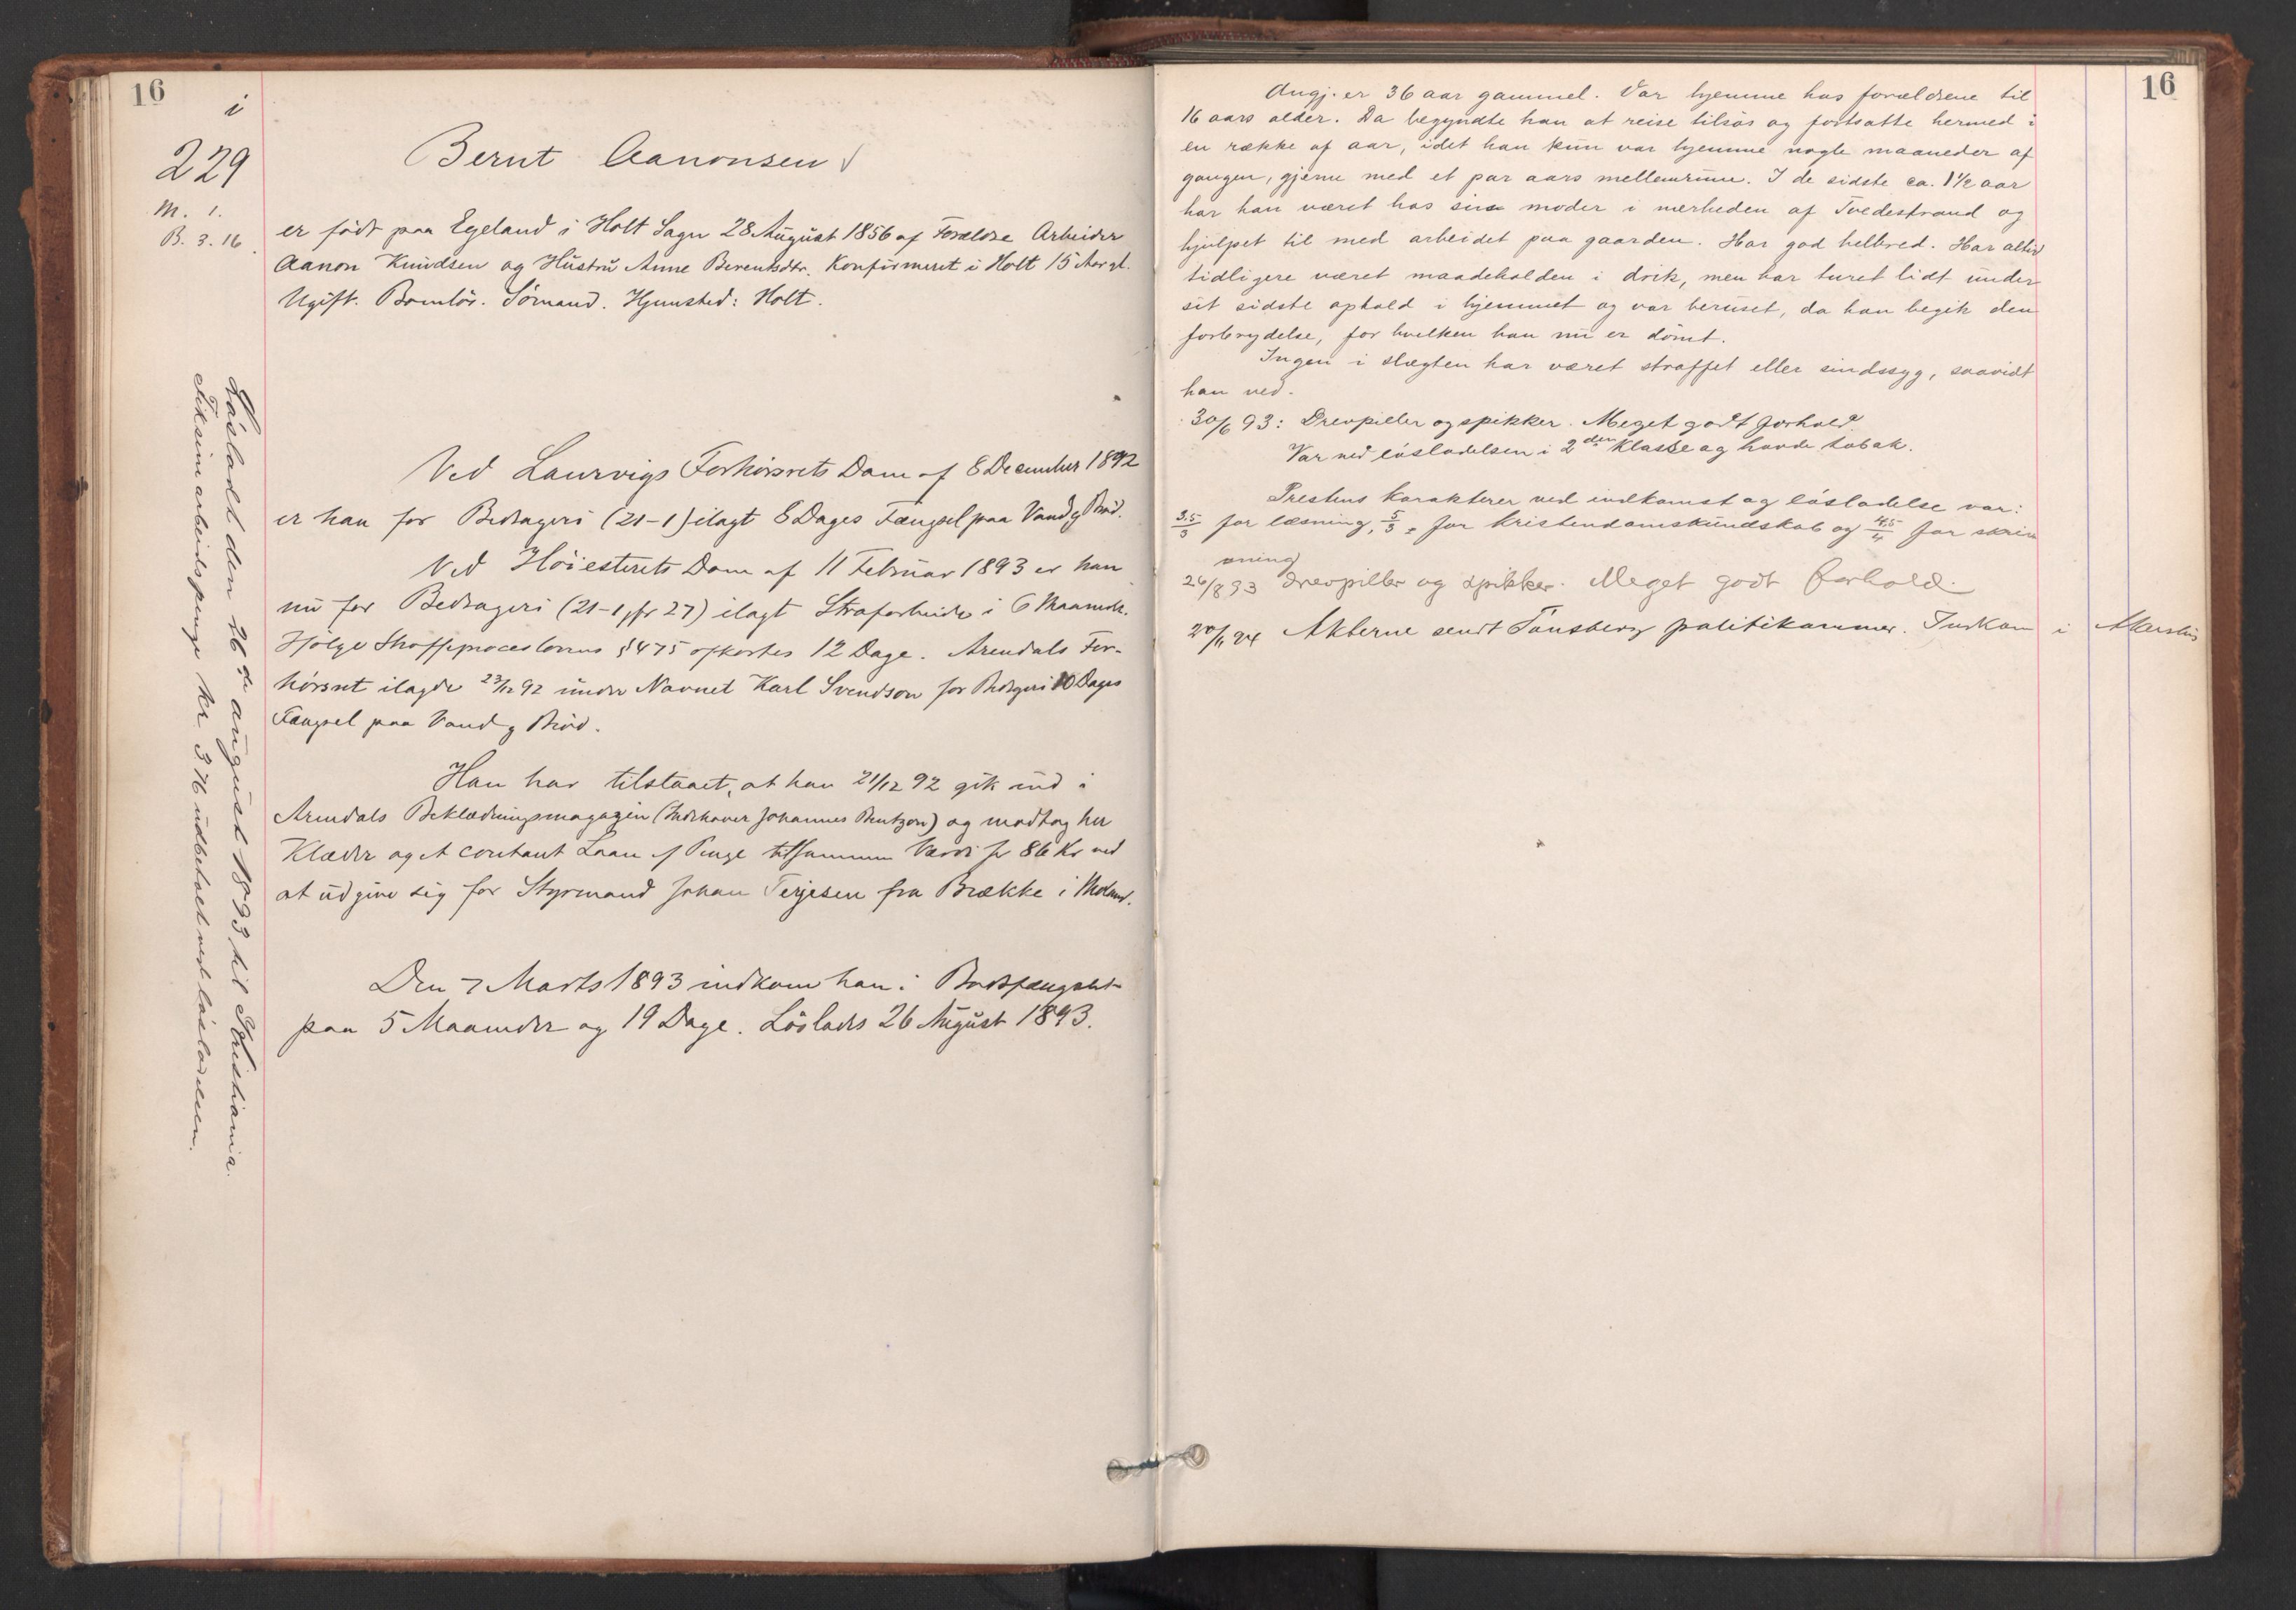 16
i
229
M. 1.
B. 3. 16.
Bernt Aanonsen
er født paa Egeland i Holt Sogn 28 August 1856 af Forældre Arbeider
Aanon Knudsen og Hustru Anne Berentsdtr. Konfirmeret i Holt 15 Aar gl.
Ugift. Barnløs. Sømand. Hjemsted: Holt.
Ved Laurvigs Forhørsrets Dom af 8 December 1892
er han for Bedrageri (21-1) ilagt 8 Dages Fængsel paa Vand og Brød.
Ved Høiesterets Dom af 11 Februar 1893 er han
nu for Bedrageri (21-1, jfr 27) ilagt Strafarbeide i 6 Maaneder.
Ifølge Straffeproceslovens § 475 afkortes 12 Dage. Arendals For-
hørsret ilagde 23/12 92 under Navnet Karl Svendson for Bedrageri 10 Dages
Fængsel paa Vand og Brød.
Han har tilstaaet, at han 21/12 92 gik ind i
Arendals Beklædningsmagazin (Indehaver Johannes Bentzon) og modtog her
Klæder og et contant Laan af Penge tilsammen Værdi for 86 Kr ved
at udgive sig for Styrmand Johan Terjesen fra Brække i Moland.
Den 7 Marts 1893 indkom han i Bodsfængslet
paa 5 Maaneder og 19 Dage. Løslades 26 August 1893.
Løsladt den 26de august 1893 til Kristiania.
Fik sine arbeidspenge kr 3.76 udbetalt ved løsladelsen.
16
Angj. er 36 aar gammel. Var hjemme hos forældrene til
16 aars alder. Da begyndte han at reise tilsøs og fortsatte hermed i
en række af aar, idet han kun var hjemme nogle maaneder af
gangen, gjerne med et par aars mellemrum. I de sidste ca. 1½ aar
har han været hos sin moder i nærheden af Tvedestrand og
hjulpet til med arbeidet paa gaarden. Har god helbred. Har altid
tidligere været maadeholden i drik, men har turet lidt under
sit sidste ophold i hjemmet og var beruset, da han begik den
forbrydelse, for hvilken han nu er dømt.
Ingen i slægten har været straffet eller sindssyg, saavidt
han ved.
30/6 93: Drevpiller og spikker. Meget godt forhold.
Var ved løsladelsen i 2den klasse og havde tobak.
Prestens karakterer ved indkomst og løsladelse var:
3.5/3 for læsning, 5/3 for kristendomskundskab og 4.5/4 for skriv
ning
26/8 93 Drevpiller og spikker. Meget godt forhold.
20/11 94 Akterne sendt Tønsberg politikammer. Indkom i Akershus